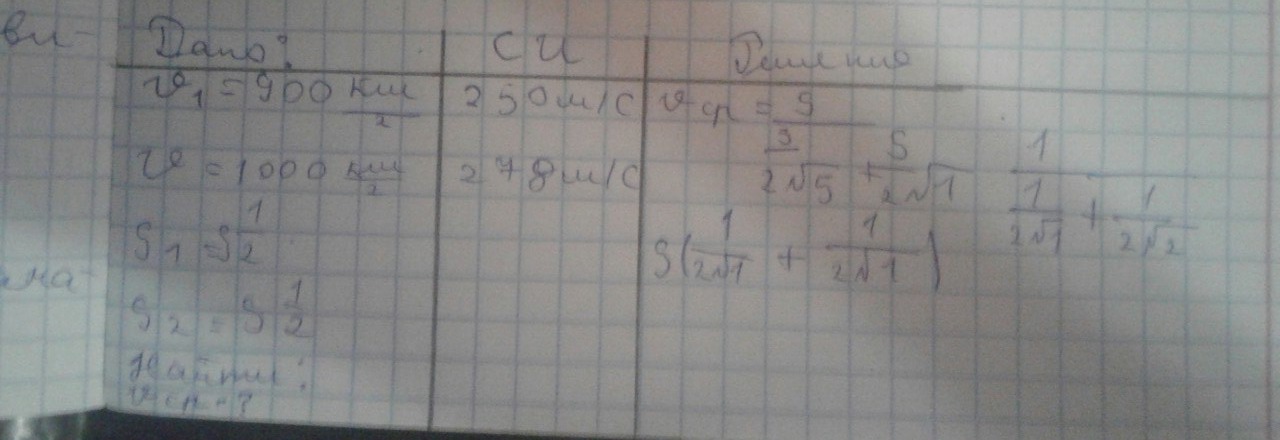 вы-
Дано: СИ Решение
v₁ = 900 км/г 250 м/с vср = S / (S/2√S + S/2√1) 1 / (1/2√1 + 1/2√2)
v = 1000 км/г 278 м/с
S₁ = S 1/2 S(1/2√1 + 1/2√1)
на-
S₂ = S 1/2
Найти:
vср - ?